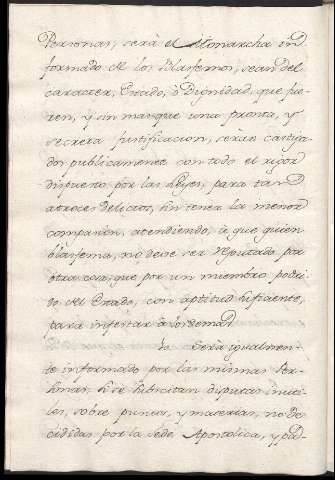 Personas, será el Monarcha in
formado de los Blasfemos, sean del
caracter, Estado, ò Dignidad, que fue
ren, y sin mas que una pronta, y
secreta justificacion, serán castiga
dos publicamente con todo el rigor
dispuesto por las Leyes, para tan
atroces delictos, sin tener la menor
compasion, atendiendo, à que quien
blasfema, no deve ser reputado por
otra cosa, que por un miembro podri
do del Estado, con aptitud suficiente,
para infestar à los demas
Será igualmen
te informado por las mismas Per
sonas, si se suscitan disputas inuti
les, sobre puntos, y materias, no de
cididas por la Sede Apostolica, y pa